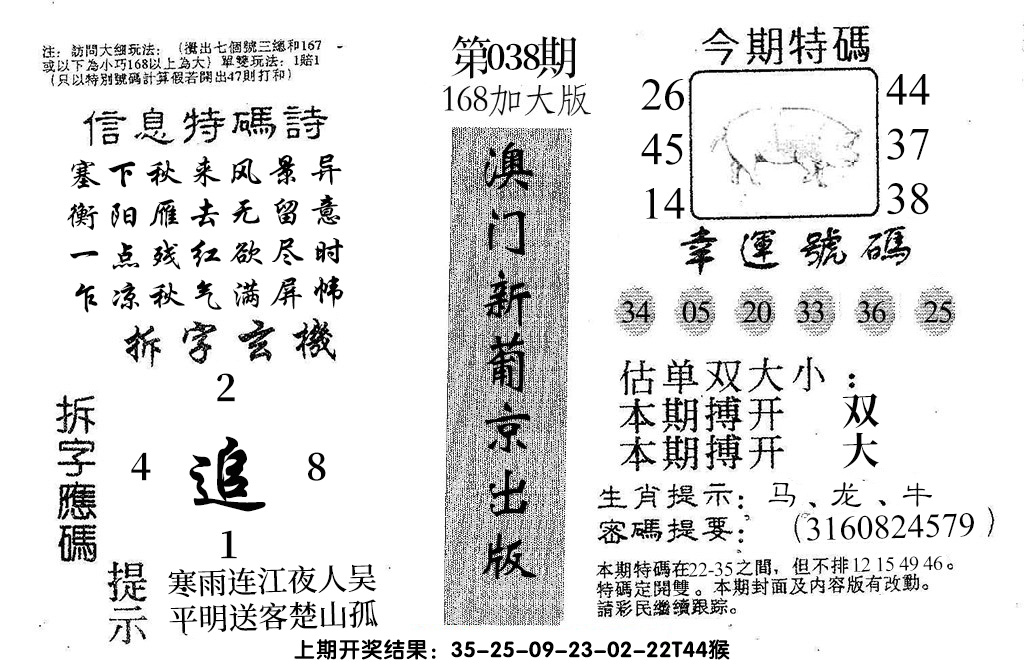 注：訪問大细玩法：（攪出七個號三總和167
或以下為小巧168以上為大）單雙玩法：1賠1
（只以特別號碼計算假若開出47則打和）
信息特碼詩
塞下秋来风景异
衡阳雁去无留意
一点残红欲尽时
乍凉秋气满屏帏
拆字玄機
拆字應碼
2
4 追 8
1
提示
寒雨连江夜人吴
平明送客楚山孤
第038期
168加大版
澳门新葡京出版
今期特碼
26 44
45 37
14 38
幸運號碼
34 05 20 33 36 25
估单双大小：
本期搏开 双
本期搏开 大
生肖提示：马、龙、牛
密碼提要：（3160824579）
本期特碼在22-35之間，但不排12 15 49 46。
特碼定開雙。本期封面及内容版有改動。
請彩民繼續跟踪。
上期开奖结果：35-25-09-23-02-22T44猴